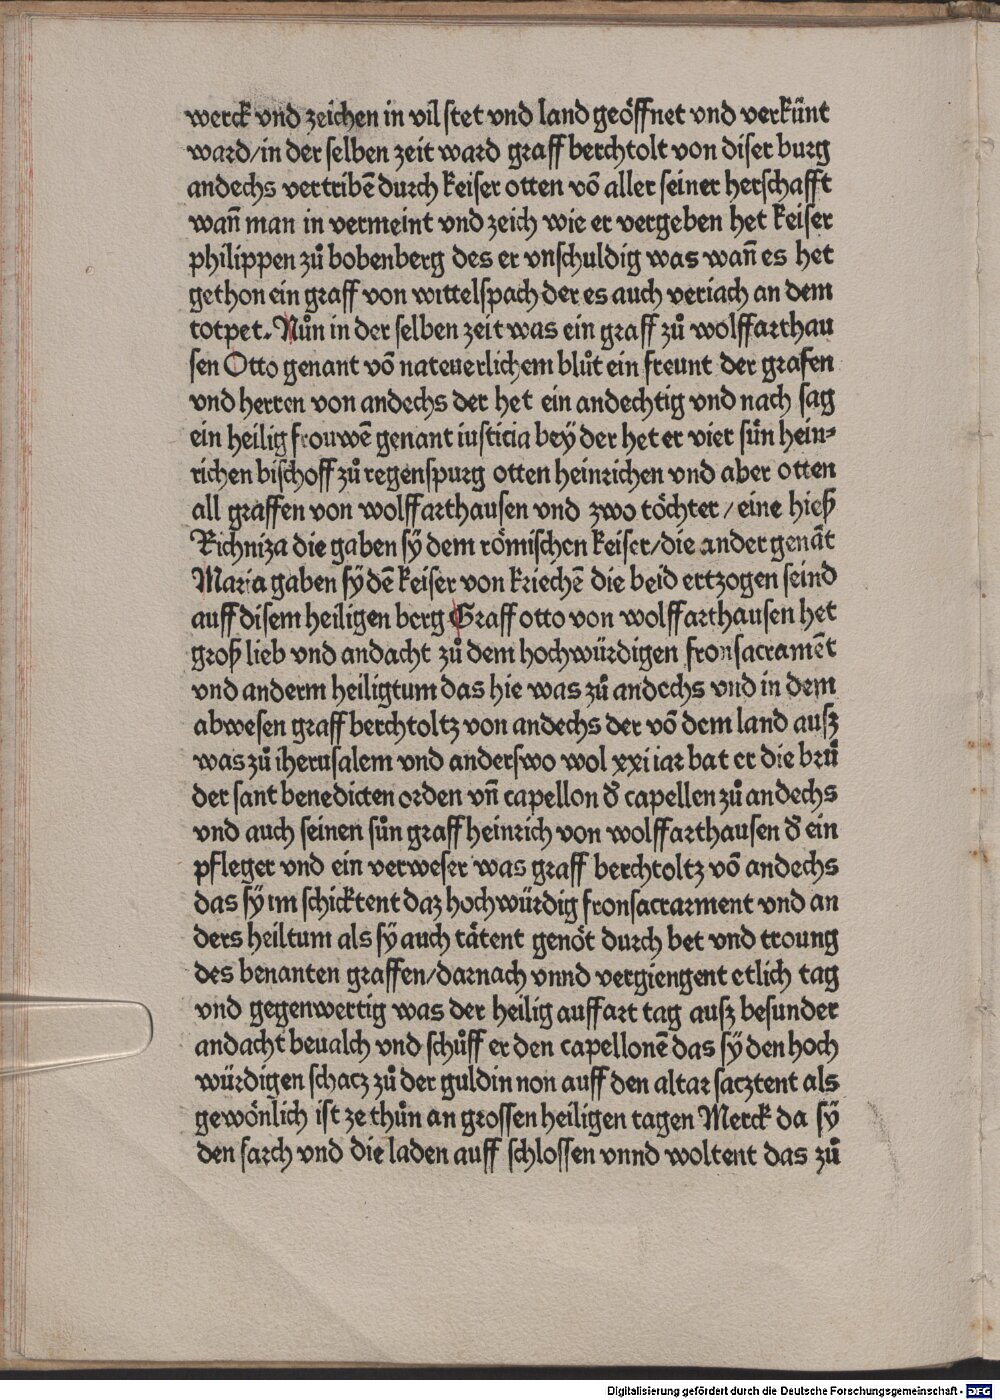 werck vnd zeichen in vil stet vnd land geöffnet vnd verkünt
ward/in der selben zeit ward graff berchtolt von diser burg
andechs vertribē durch keiser otten vō aller seiner herschafft
wan̄ man in vermeint vnd zeich wie er vergeben het keiser
philippen zů bobenberg des er vnschuldig was wan̄ es het
gethon ein graff von wittelspach der es auch veriach an dem
totpet. Nůn in der selben zeit was ein graff zů wolffarthau
sen Otto genant vō nateuerlichem blůt ein freunt der grafen
vnd herren von andechs der het ein andechtig vnd nach sag
ein heilig frouwē genant iusticia bey der het er vier sün hein⸗
richen bischoff zů regenspurg otten heinrichen vnd aber otten
all graffen von wolffarthausen vnd zwo töchter / eine hieß
Richniza die gaben sÿ dem römischen keiser/die ander genāt
Maria gaben sÿ dē keiser von kriechē die beid ertzogen seind
auff disem heiligen berg Graff otto von wolffarthausen het
groß lieb vnd andacht zů dem hochwürdigen fronsacramēt
vnd anderm heiligtum das hie was zů andechs vnd in dem
abwesen graff berchtoltz von andechs der vō dem land ausz
was zů iherusalem vnd anderswo wol xxi iar bat er die brů
der sant benedicten orden vn̄ capellon d̕ capellen zů andechs
vnd auch seinen sůn graff heinrich von wolffarthausen d̕ ein
pfleger vnd ein verweser was graff berchtoltz vō andechs
das sÿ im schicktent daz hochwürdig fronsacrarment vnd an
ders heiltum als sÿ auch tätent genöt durch bet vnd troung
des benanten graffen/darnach vnnd vergiengent etlich tag
vnd gegenwertig was der heilig auffart tag ausz besunder
andacht beualch vnd schůff er den capellonē das sÿ den hoch
würdigen schacz zů der guldin non auff den altar sacztent als
gewönlich ist ze thůn an grossen heiligen tagen Merck da sÿ
den sarch vnd die laden auff schlossen vnnd woltent das zů
Digitalisierung gefördert durch die Deutsche Forschungsgemeinschaft - DFG